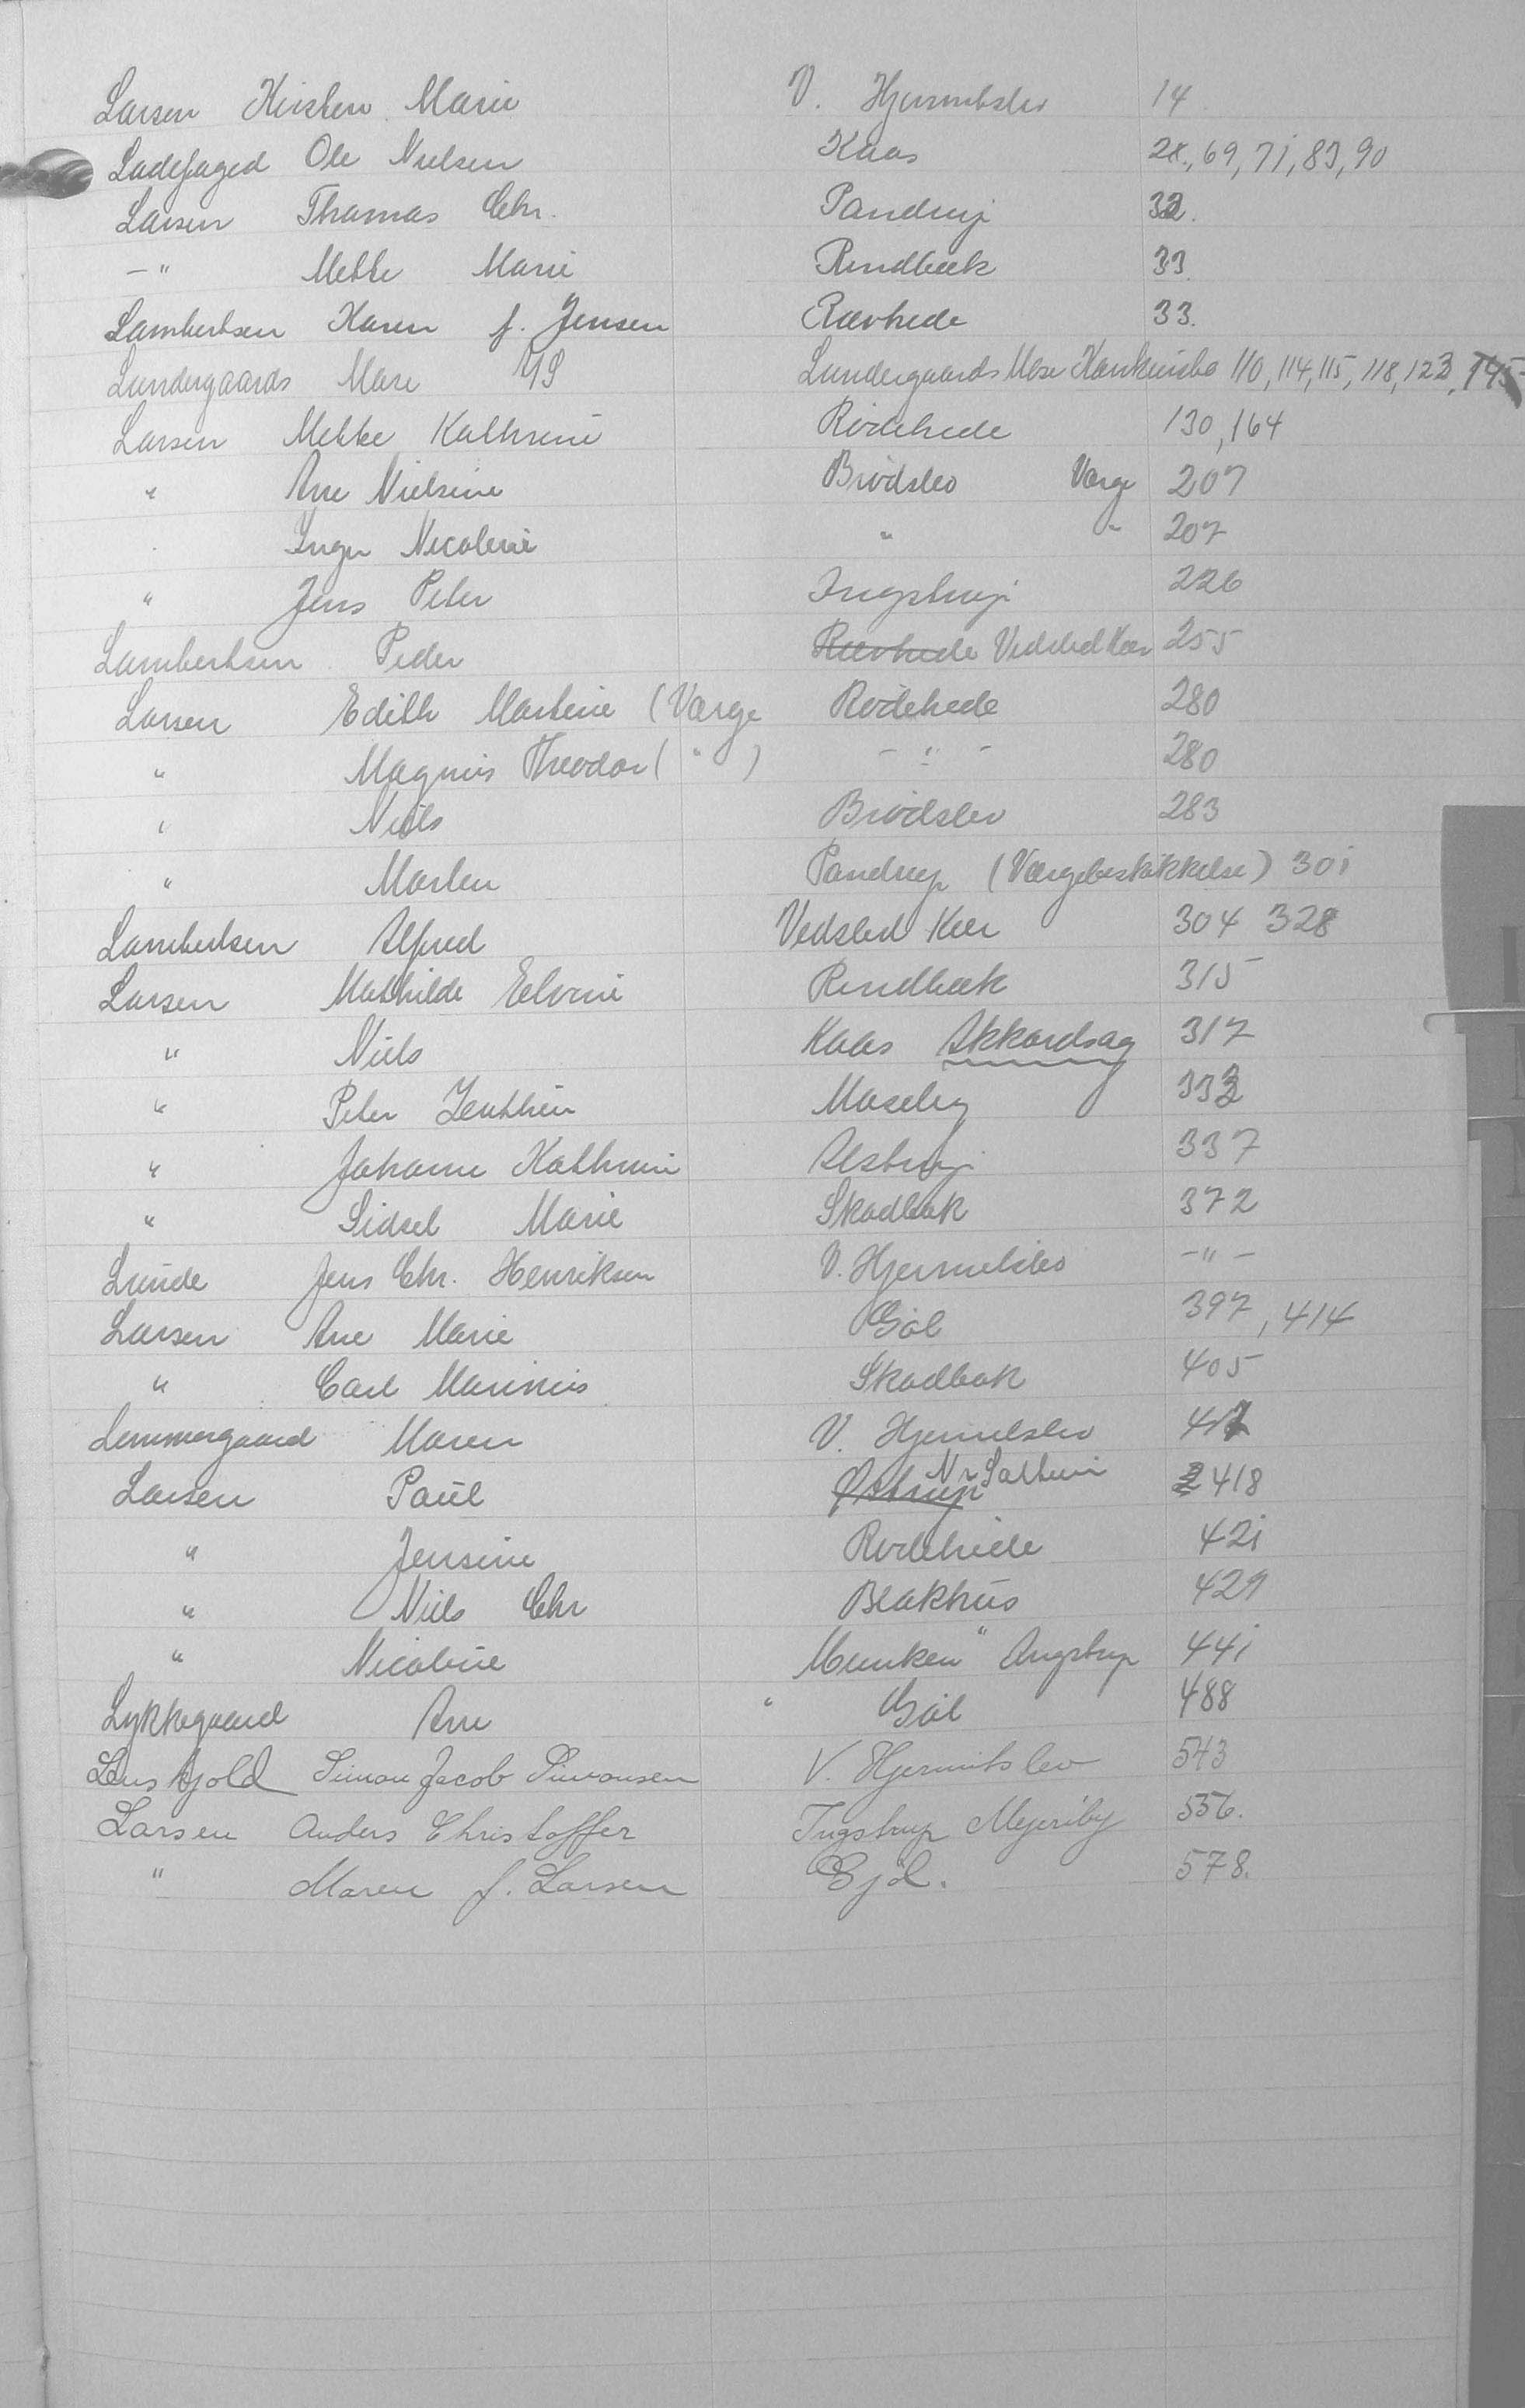 Larsen Kirsten Marie V. Hjermitslev 14
Ladefoged Ole Nielsen Kaas 28., 69, 71, 83, 90
Larsen Thomas Chr. Pandrup 32.
—" Mette Marie Rendbæk 33.
Lambertsen Karen f. Jensen Rævhede 33.
Lundergaards Mose I/S Lundergaards Mose Konkursbo 110, 114, 115, 118, 123, 145
Larsen Mette Kathrine Rødehede 130, 164
" Ane Nielsine Brødslev Værge 207
Inger Nicoline " " 207
" Jens Peter Ingstrup 226
Lambertsen Peder Rævhede Vedsted Kær 255
Larsen Edith Martine (Værge Rødehede 280
" Magnus Theodor ( " ) — " — 280
" Niels Brødslev 283
" Morten Pandrup (Værgebeskikkelse) 301
Lambertsen Alfred Vedsted Kær 304 328
Larsen Mathilde Elvine Rendbæk 315
" Niels Kaas Akkordsag 317
" Peter Zeuthen Moseby 333
" Johanne Kathrine Alstrup 337
" Sidsel Marie Skadbak 372
Lunde Jens Chr. Henriksen V. Hjermitslev —"—
Larsen Ane Marie Gøl 397, 414
" Carl Marinus Skadbak 405
Lemmergaard Maren V. Hjermitslev 417
Larsen Paul Østrup Nr Saltum 418
" Jensine Rødehede 421
" Niels Chr Blokhus 429
" Nicoline Munken" Ingstrup 441
Lykkegaard Ane " Gøl 488
Leuskjold Simon Jacob Simonsen V. Hjermitslev 543
Larsen Anders Christoffer Ingstrup Mejeriby 556.
" Maren f. Larsen Gjøl. 578.